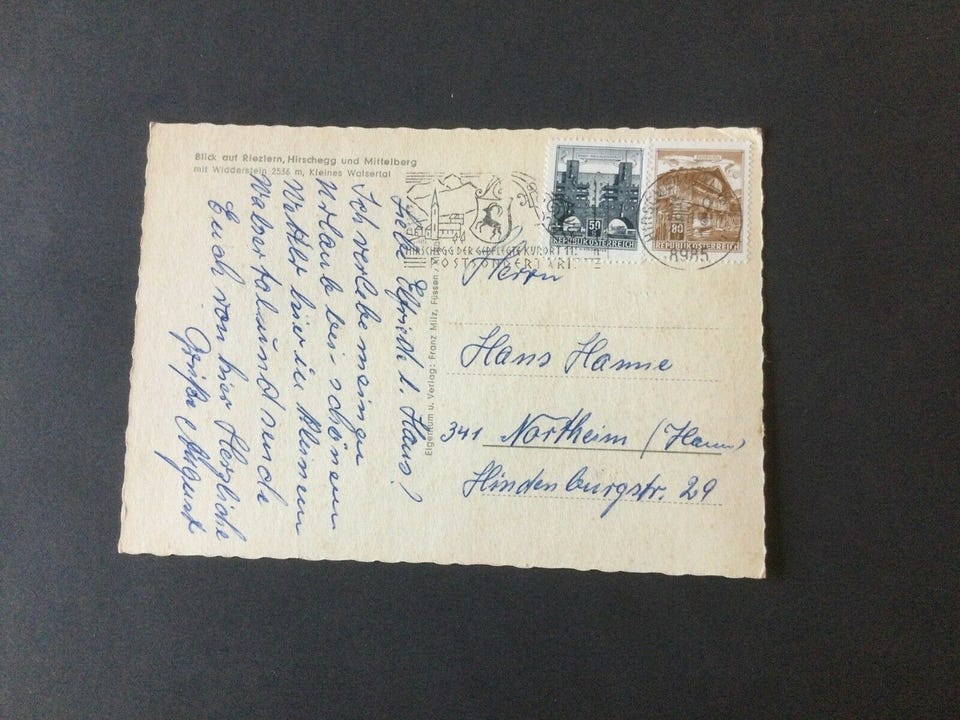 Blick auf Riezlern, Hirschegg und Mittelberg
mit Widderstein 2536 m, Kleines Walsertal
Liebe Elfriede u. Hans!
Ich verlebe meinen
Urlaub bei schönem
Wetter hier im kleinen
Walsertal und sende
Euch von hier Herzliche
Grüße August
Eigentum u. Verlag: Franz Milz, Füssen
HIRSCHEGG DER GEPFLEGTE KURORT
POSTSONDERTARIF
50
REPUBLIK ÖSTERREICH
80
REPUBLIK ÖSTERREICH
8985
Herrn
Hans Hanne
341 Northeim (Hann)
Hindenburgstr. 29